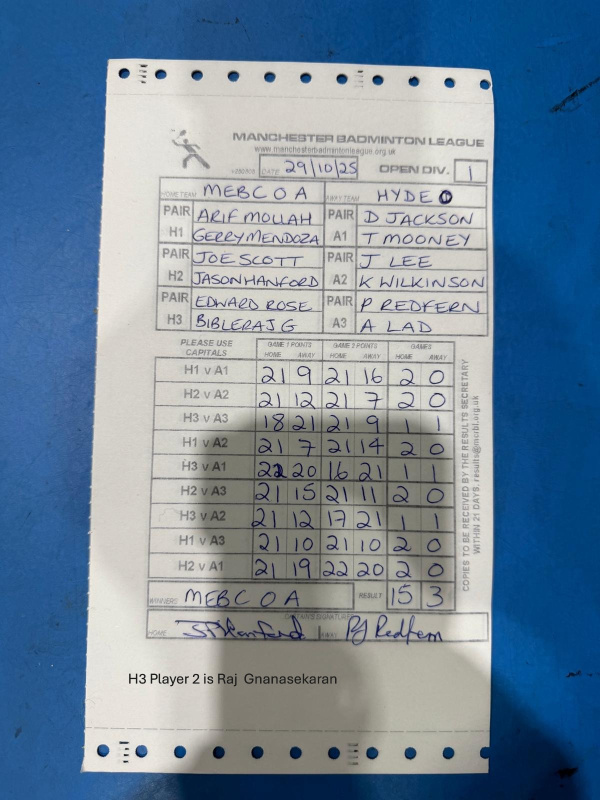 MANCHESTER BADMINTON LEAGUE
www.manchesterbadmintonleague.org.uk
DATE 29/10/25 OPEN DIV. 1
HOME TEAM MEBC O A AWAY TEAM HYDE O
PAIR H1 ARIF MOLLAH PAIR A1 D JACKSON
GERRY MENDOZA T MOONEY
PAIR H2 JOE SCOTT PAIR A2 J LEE
JASON HANFORD K WILKINSON
PAIR H3 EDWARD ROSE PAIR A3 P REDFERN
BIBLERAJ G A LAD
PLEASE USE CAPITALS GAME 1 POINTS GAME 2 POINTS GAMES
HOME AWAY HOME AWAY HOME AWAY
H1 v A1 21 9 21 16 2 0
H2 v A2 21 12 21 7 2 0
H3 v A3 18 21 21 9 1 1
H1 v A2 21 7 21 14 2 0
H3 v A1 22 20 16 21 1 1
H2 v A3 21 15 21 11 2 0
H3 v A2 21 12 17 21 1 1
H1 v A3 21 10 21 10 2 0
H2 v A1 21 19 22 20 2 0
WINNERS MEBC O A RESULT 15 3
CAPTAINS SIGNATURE
HOME AWAY PJ Redfern
COPIES TO BE RECEIVED BY THE RESULTS SECRETARY
WITHIN 21 DAYS. results@mcrbl.org.uk
H3 Player 2 is Raj Gnanasekaran